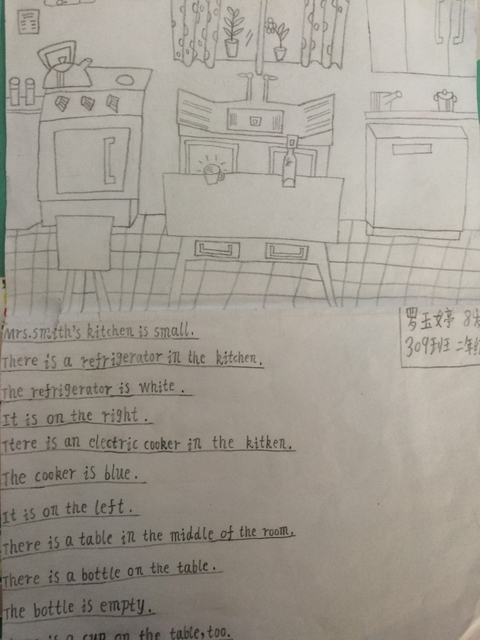 Mrs.smith's kitchen is small.
There is a refrigerator in the kitchen.
The refrigerator is white.
It is on the right.
Ttere is an electric cooker in the kitken.
The cooker is blue.
It is on the left.
There is a table in the middle of the room.
There is a bottle on the table.
The bottle is empty.
is a cup on the table,too.
罗玉婷 8
309班 二年